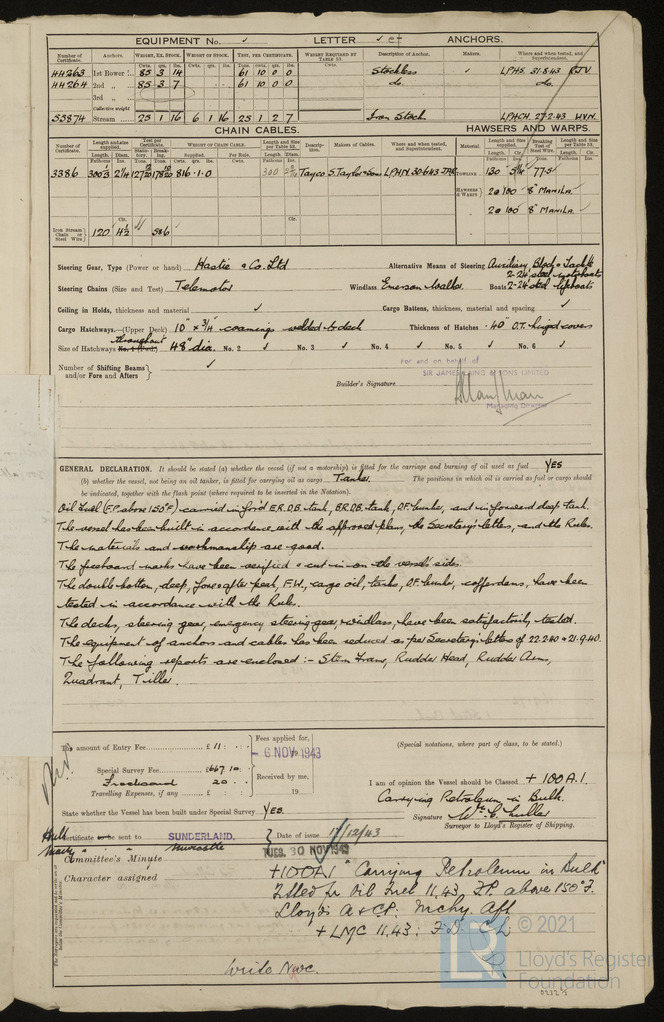 EQUIPMENT No. LETTER ANCHORS.
Number of Certificate. Anchors. WEIGHT, EX. STOCK. WEIGHT OF STOCK. TEST, PER CERTIFICATE. WEIGHT REQUIRED BY TABLE 53. Description of Anchor. Makers. Where and when tested, and Superintendent.
44263 1st Bower 85 3 14 61 10 0 0 Stockless LPHS. 31.8.43
44264 2nd „ 85 3 7 61 10 0 0 do. do.
3rd „
Collective weight
53874 Stream 25 1 16 6 1 16 25 1 2 7 Iron Stock LPHCH. 27.2.43 WVN.
CHAIN CABLES. HAWSERS AND WARPS.
3386 300 2 1/16 816.1.0 300 Tayco S. Taylor & Sons LPHN 30.6.43 130 77.5
HAWSERS & WARPS 2@100 8" MANILA
2@100 8" MANILA
Iron Stream Chain or Steel Wire 120 4½
Steering Gear, Type (Power or hand) Hastie & Co. Ltd Alternative Means of Steering Auxiliary Block & Tackle
Steering Chains (Size and Test) Telemotor Windlass Emerson Walker. Boats 2-24' steel lifeboats
Ceiling in Holds, thickness and material Cargo Battens, thickness, material and spacing
Cargo Hatchways.—(Upper Deck) 10" x 3/4" coamings welded to deck Thickness of Hatches .40" O.T. hinged covers
throughout
Size of Hatchways 48" dia. No. 2 No. 3 No. 4 No. 5 No. 6
Number of Shifting Beams and/or Fore and Afters
For and on behalf of
SIR JAMES LAING & SONS LIMITED
Builder's Signature
Managing Director
GENERAL DECLARATION. It should be stated (a) whether the vessel (if not a motorship) is fitted for the carriage and burning of oil used as fuel YES
(b) whether the vessel, not being an oil tanker, is fitted for carrying oil as cargo Tanker. The positions in which oil is carried as fuel or cargo should
be indicated, together with the flash point (where required to be inserted in the Notation).
Oil Fuel (F.P. above 150°F) carried in for'd E.R. D.B. tank, B.R. D.B. tank, O.F. bunker, and in forward deep tank.
The vessel has been built in accordance with the approved plans, the Secretary's letters, and the Rules.
The materials and workmanship are good.
The freeboard marks have been verified & cut in on the vessel's sides.
The double bottom, deep, fore & after peak, F.W., cargo oil, tanks, O.F. bunker, cofferdams, have been
tested in accordance with the Rules.
The decks, steering gear, emergency steering gear, windlass, have been satisfactorily tested.
The equipment of anchors and cables has been reduced as per Secretary's letters of 22.2.40 & 21.9.40.
The following reports are enclosed :- Stern Frame, Rudder Head, Rudder Arms,
Quadrant, Tiller.
The amount of Entry Fee £ 11 : :
Fees applied for,
6 NOV 1943
(Special notations, where part of class, to be stated.)
Special Survey Fee £667.10.
Freeboard 20
Received by me,
19
Travelling Expenses, if any £ : :
I am of opinion the Vessel should be Classed + 100 A.1
Carrying Petroleum in Bulk.
Signature
Surveyor to Lloyd's Register of Shipping.
State whether the Vessel has been built under Special Survey Yes.
Hull Certificate to be sent to SUNDERLAND. Date of issue 17/12/43
Mchy " " " Newcastle
Committee's Minute TUES. 30 NOV 1943
Character assigned +100A1 "Carrying Petroleum in Bulk"
Fitted for Oil Fuel 11,43, F.P. above 150°F.
Lloyd's A & CP. Mchy. Aft
+ LMC 11.43: F.D. CL
Write Nwc.
© 2021
Lloyd's Register
Foundation